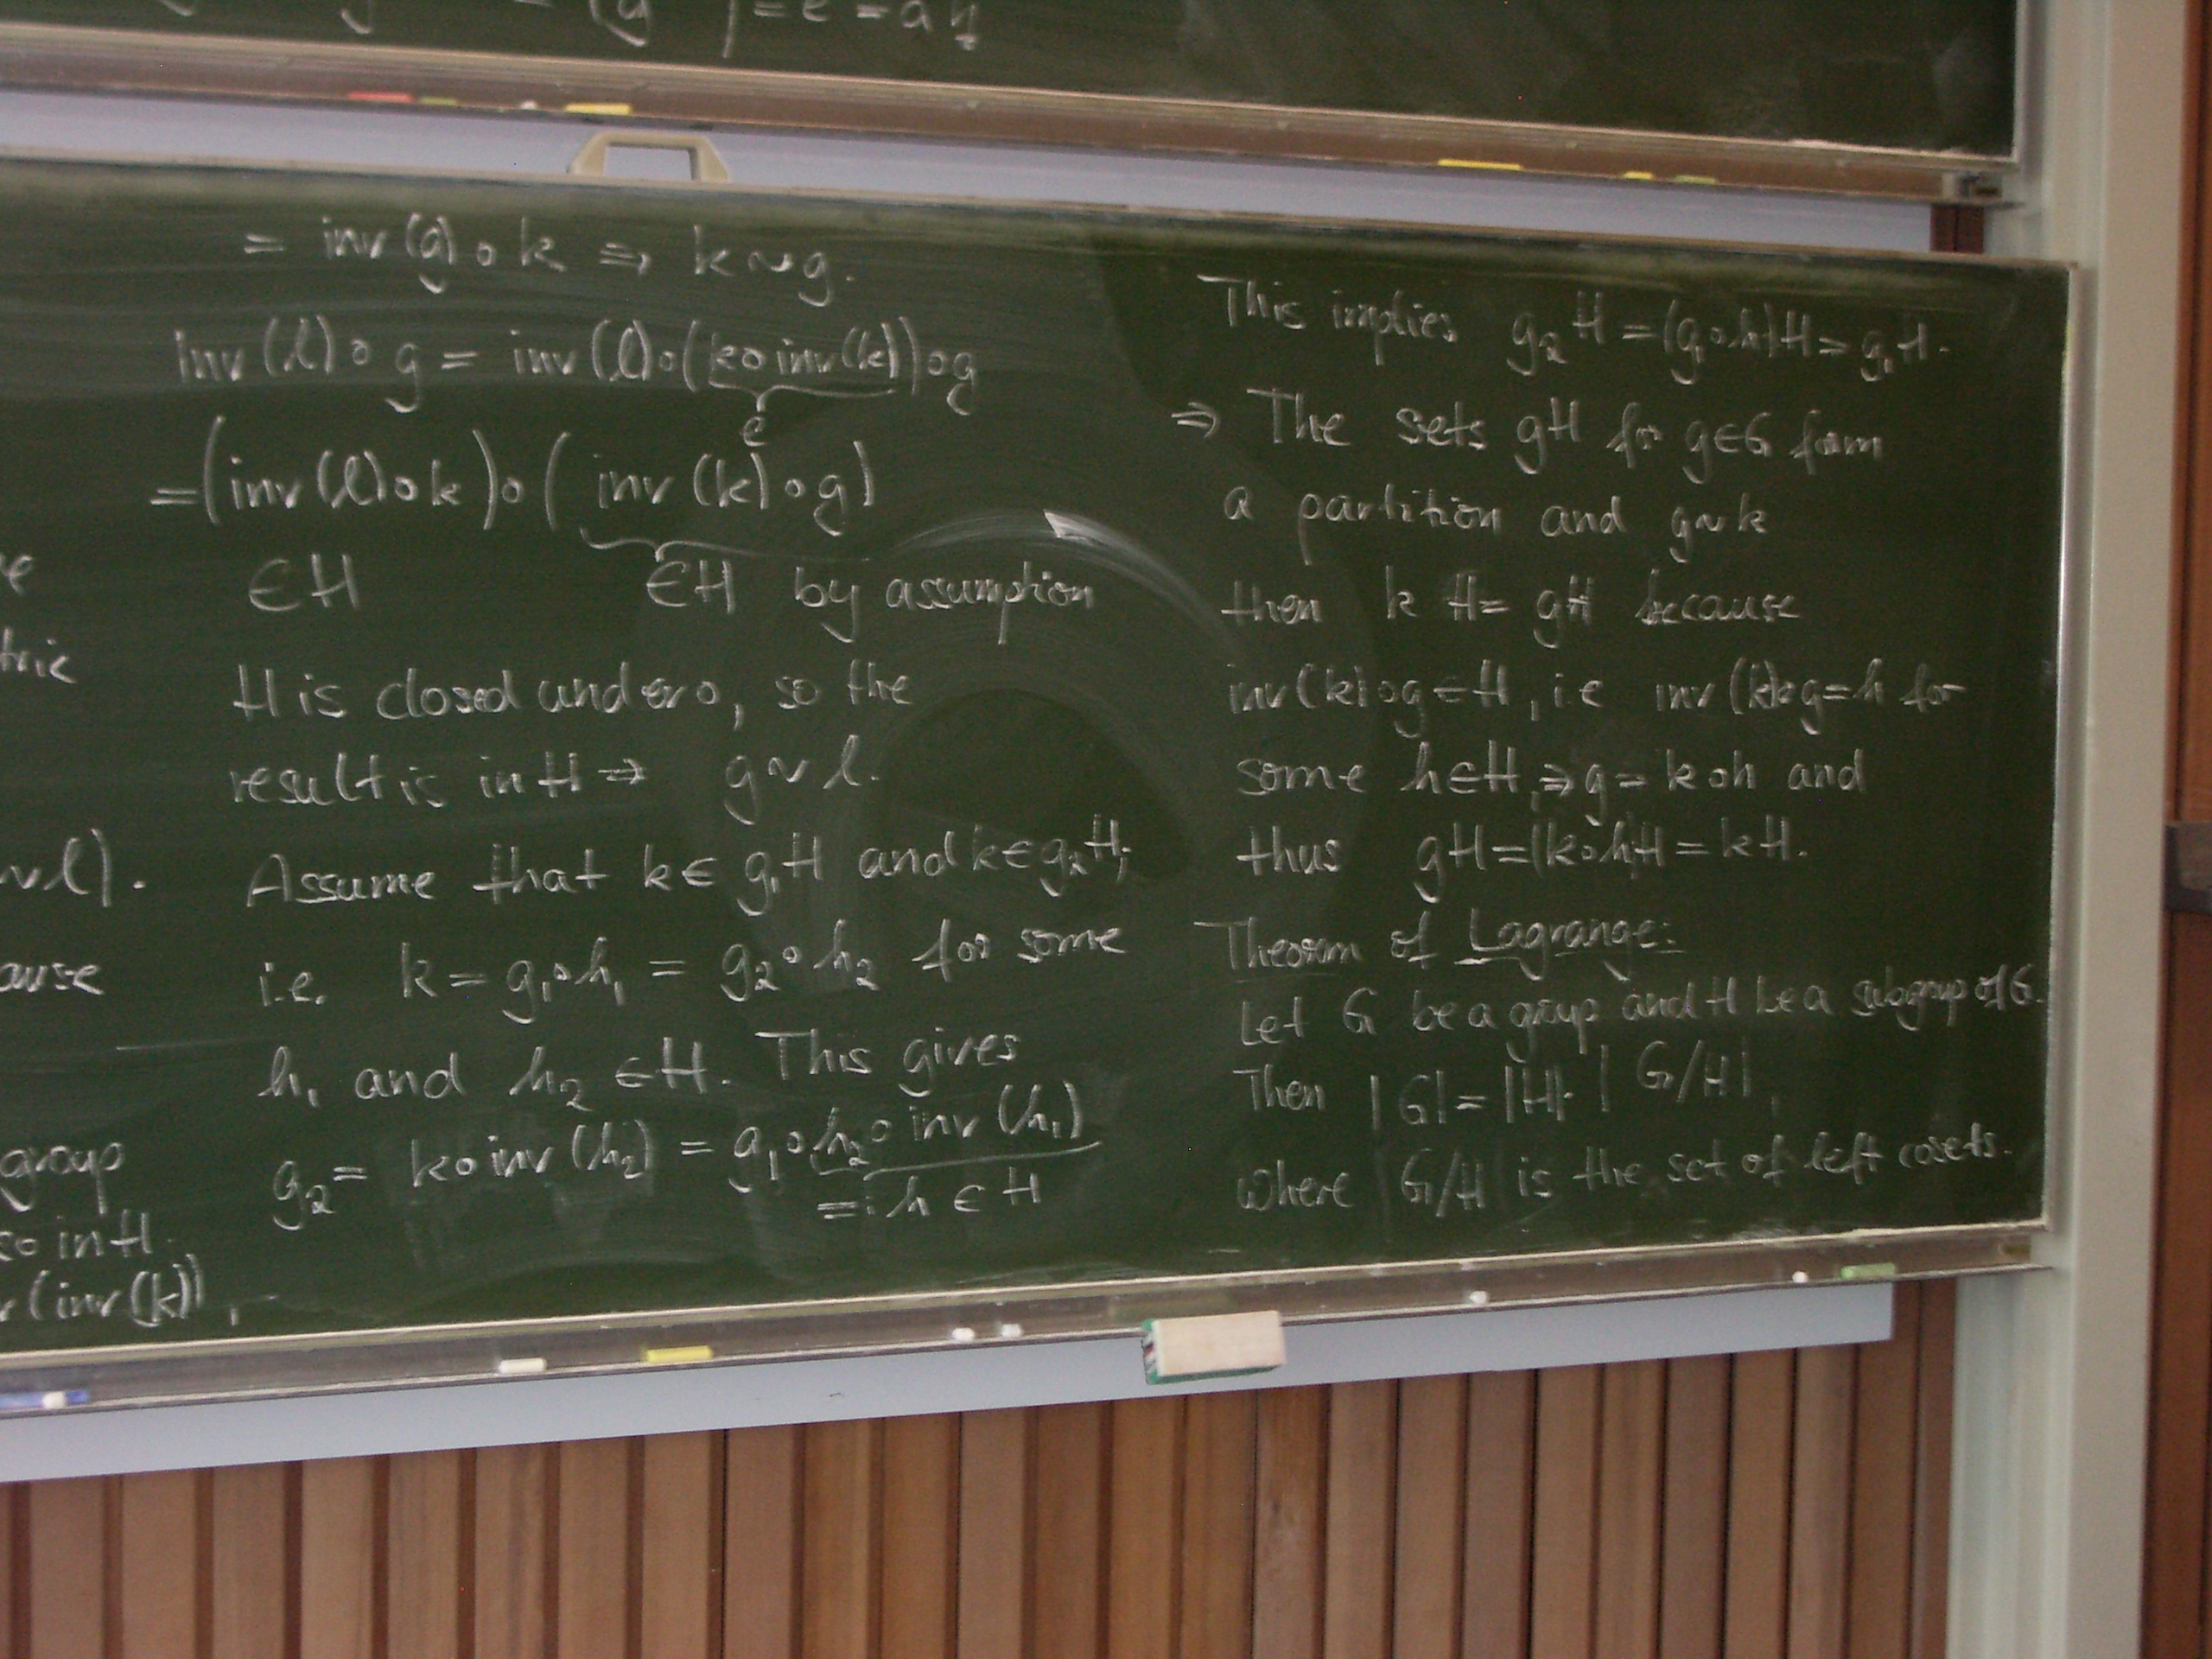 = e = a
= inv (g) ∘ k ⇒ k ~ g.
inv (l) ∘ g = inv (l) ∘ (k ∘ inv (k)) ∘ g
e
= (inv (l) ∘ k) ∘ ( inv (k) ∘ g)
∈ H ∈ H by assumption
H is closed under ∘, so the
result is in H ⇒ g ~ l.
Assume that k ∈ g₁H and k ∈ g₂H;
i.e. k = g₁∘h₁ = g₂∘h₂ for some
h₁ and h₂ ∈ H. This gives
g₂ = k ∘ inv (h₂) = g₁ ∘ h₂ ∘ inv (h₁)
=: h ∈ H
tric
~l).
ause
group
so in H.
(inv (k)),
This implies g₂H = (g₁∘h)H = g₁H.
⇒ The sets gH for g∈G form
a partition and g~k
then k H = gH because
inv (k) ∘ g ∈ H, i.e inv (k)∘g = h for
some h∈H, ⇒ g = k∘h and
thus gH = (k∘h)H = kH.
Theorem of Lagrange:
Let G be a group and H be a subgroup of G.
Then |G| = |H|· | G/H|,
where G/H is the set of left cosets.